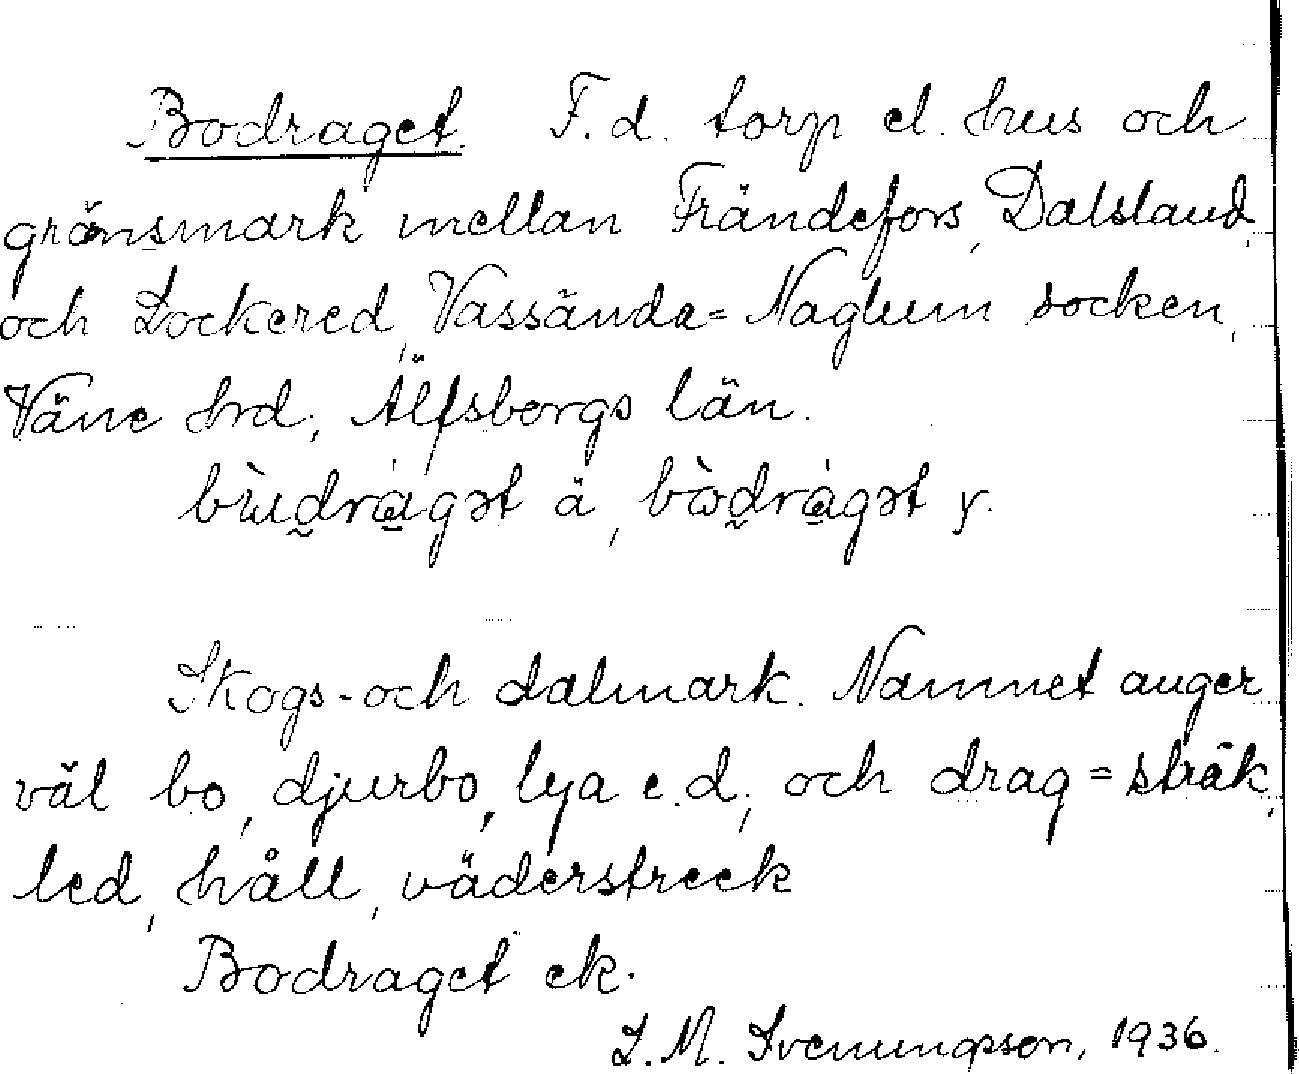 Bodraget. F.d. torp el. hus och
gränsmark mellan Frändefors, Dalsland,
och Lockered, Vassända=Naglum socken,
Väne hrd, Älfsborgs län.
ä, y.
Skogs- och dalmark. Namnet anger
väl bo, djurbo, lya e.d., och drag = stråk,
led, håll, väderstreck
Bodraget ek.
L. M. Svenungsson, 1936.